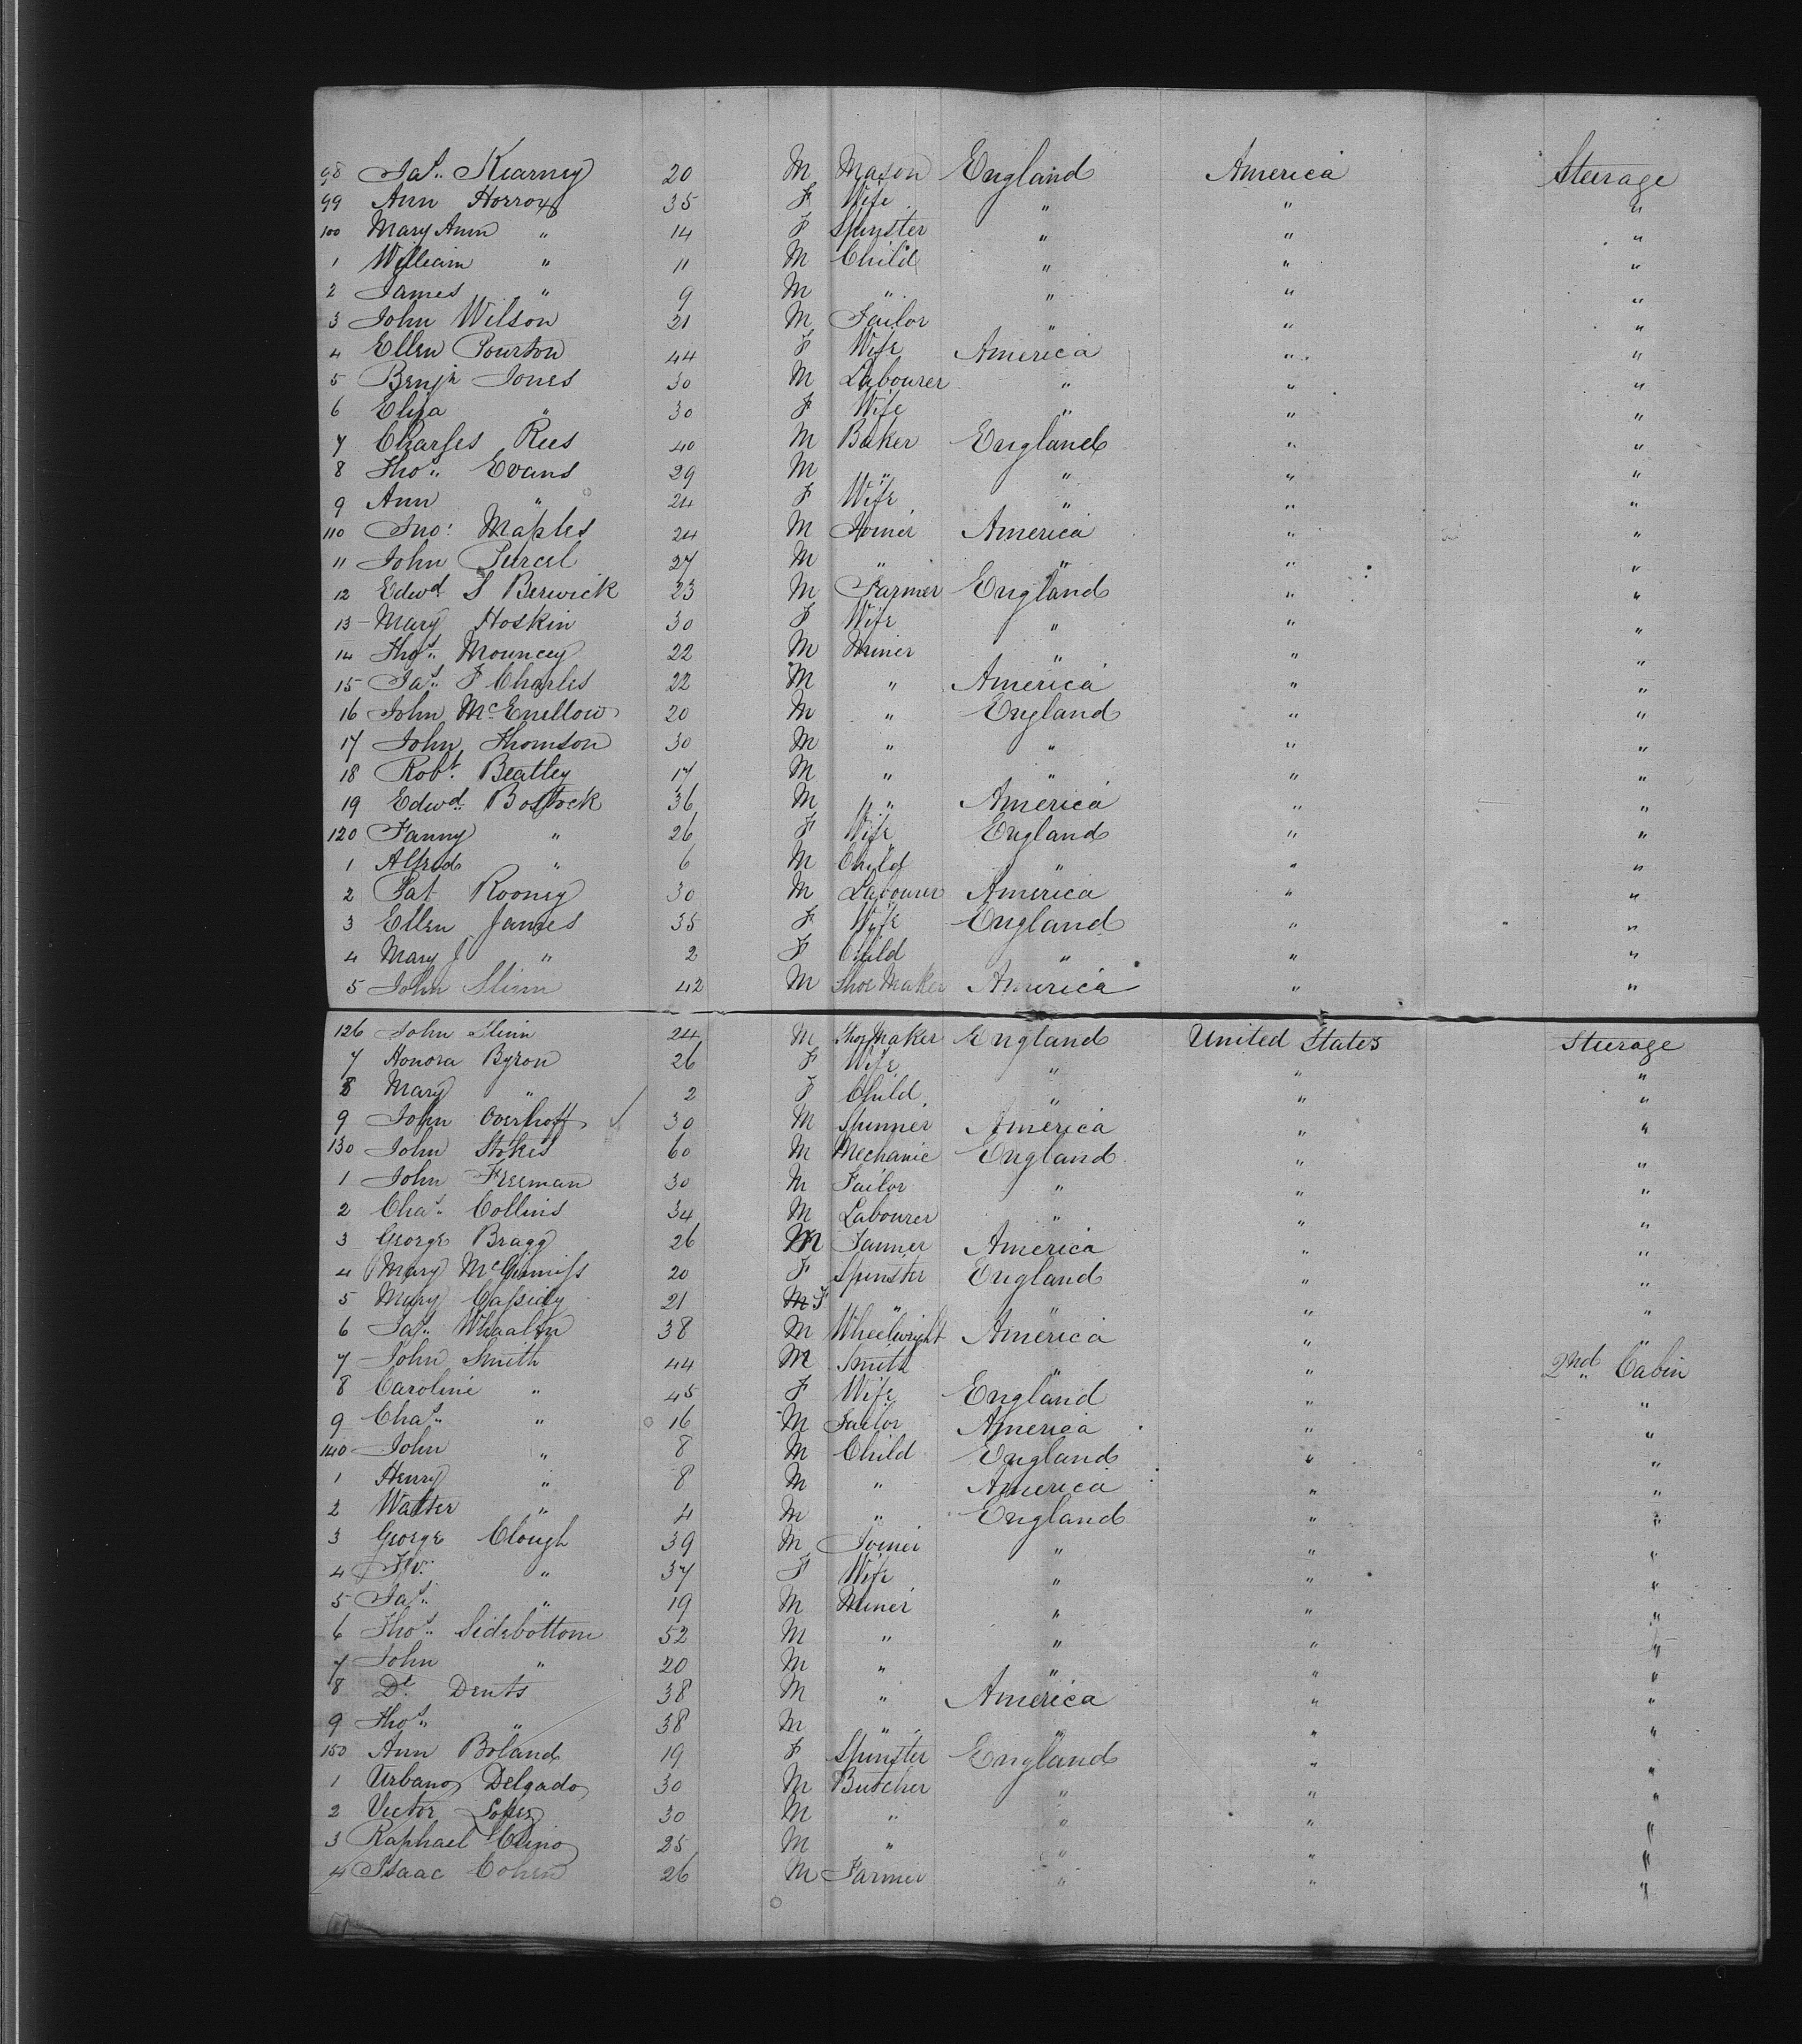 98 Jas. Kearney 20 M Mason England America Steerage
99 Ann Horrox 35 F Wife " " "
100 Mary Ann " 14 F Spinster " " "
1 William " 11 M Child " " "
2 James " 9 M " " " "
3 John Wilson 21 M Tailor " " "
4 Ellen Pourton 44 F Wife America " "
5 Benjn Jones 30 M Labourer " " "
6 Eliza " 30 F Wife " " "
7 Charles Rees 40 M Baker England " "
8 Thos. Evans 29 M " " " "
9 Ann " 24 F Wife " " "
110 Jno: Maples 24 M Joiner America " "
11 John Purcel 27 M " " " "
12 Edwd S Berwick 23 M Farmer England " "
13 Mary Hoskin 30 F Wife " " "
14 Thos. Mouncey 22 M Miner " " "
15 Jas. F Charles 22 M " America " "
16 John McEnellow 20 M " England " "
17 John Thomson 30 M " " " "
18 Robt. Beatley 17 M " " " "
19 Edwd. Bostock 36 M " " America " "
120 Fanny " 26 F Wife England " "
1 Alfred " 6 M Child " " "
2 Pat Rooney 30 M Labourer America " "
3 Ellen James 35 F Wife England " "
4 Mary J " 2 F Child " " "
5 John 42 M Shoe Maker America " "
126 John 24 M Shoe Maker England United States Steerage
7 Honora Byron 26 F Wife " " "
8 Mary " 2 F Child " " "
9 John Overhoff 30 M Spinner America " "
130 John Stokes 60 M Mechanic England " "
1 John Freeman 30 M Tailor " " "
2 Chas. Collins 34 M Labourer " " "
3 George Bragg 26 M America " "
4 Mary McGinniss 20 F Spinster England " "
5 Mary Cassidy 21 M F " " " "
6 Jas. Whaalen 38 M Wheelwright America " "
7 John Smith 44 M Smith " " 2nd Cabin
8 Caroline " 45 F Wife England " "
9 Chas. " 16 M Tailor America " "
140 John " 8 M Child England " "
1 Henry " 8 M " America " "
2 Walter " 4 M " England " "
3 George Clough 39 M Joiner " " "
4 " 37 F Wife " " "
5 Jas. " 19 M Miner " " "
6 Thos. Sidebottom 52 M " " " "
7 John " 20 M " " " "
8 Dents 38 M " America " "
9 Thos. " 38 M " " " "
150 Ann Boland 19 F Spinster England " "
1 Urbano Delgado 30 M Butcher " " "
2 Victor Lopez 30 M " " " "
3 Raphael 25 M " " " "
4 Isaac Cohen 26 M Farmer " " "